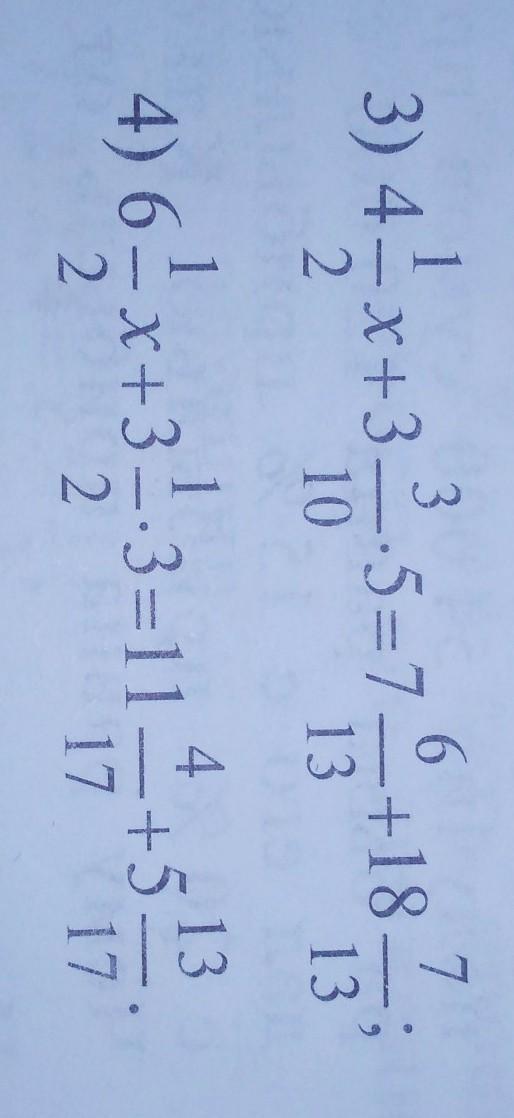 3) 4 1/2 x + 3 3/10 · 5 = 7 6/13 + 18 7/13;
4) 6 1/2 x + 3 1/2 · 3 = 11 4/17 + 5 13/17.